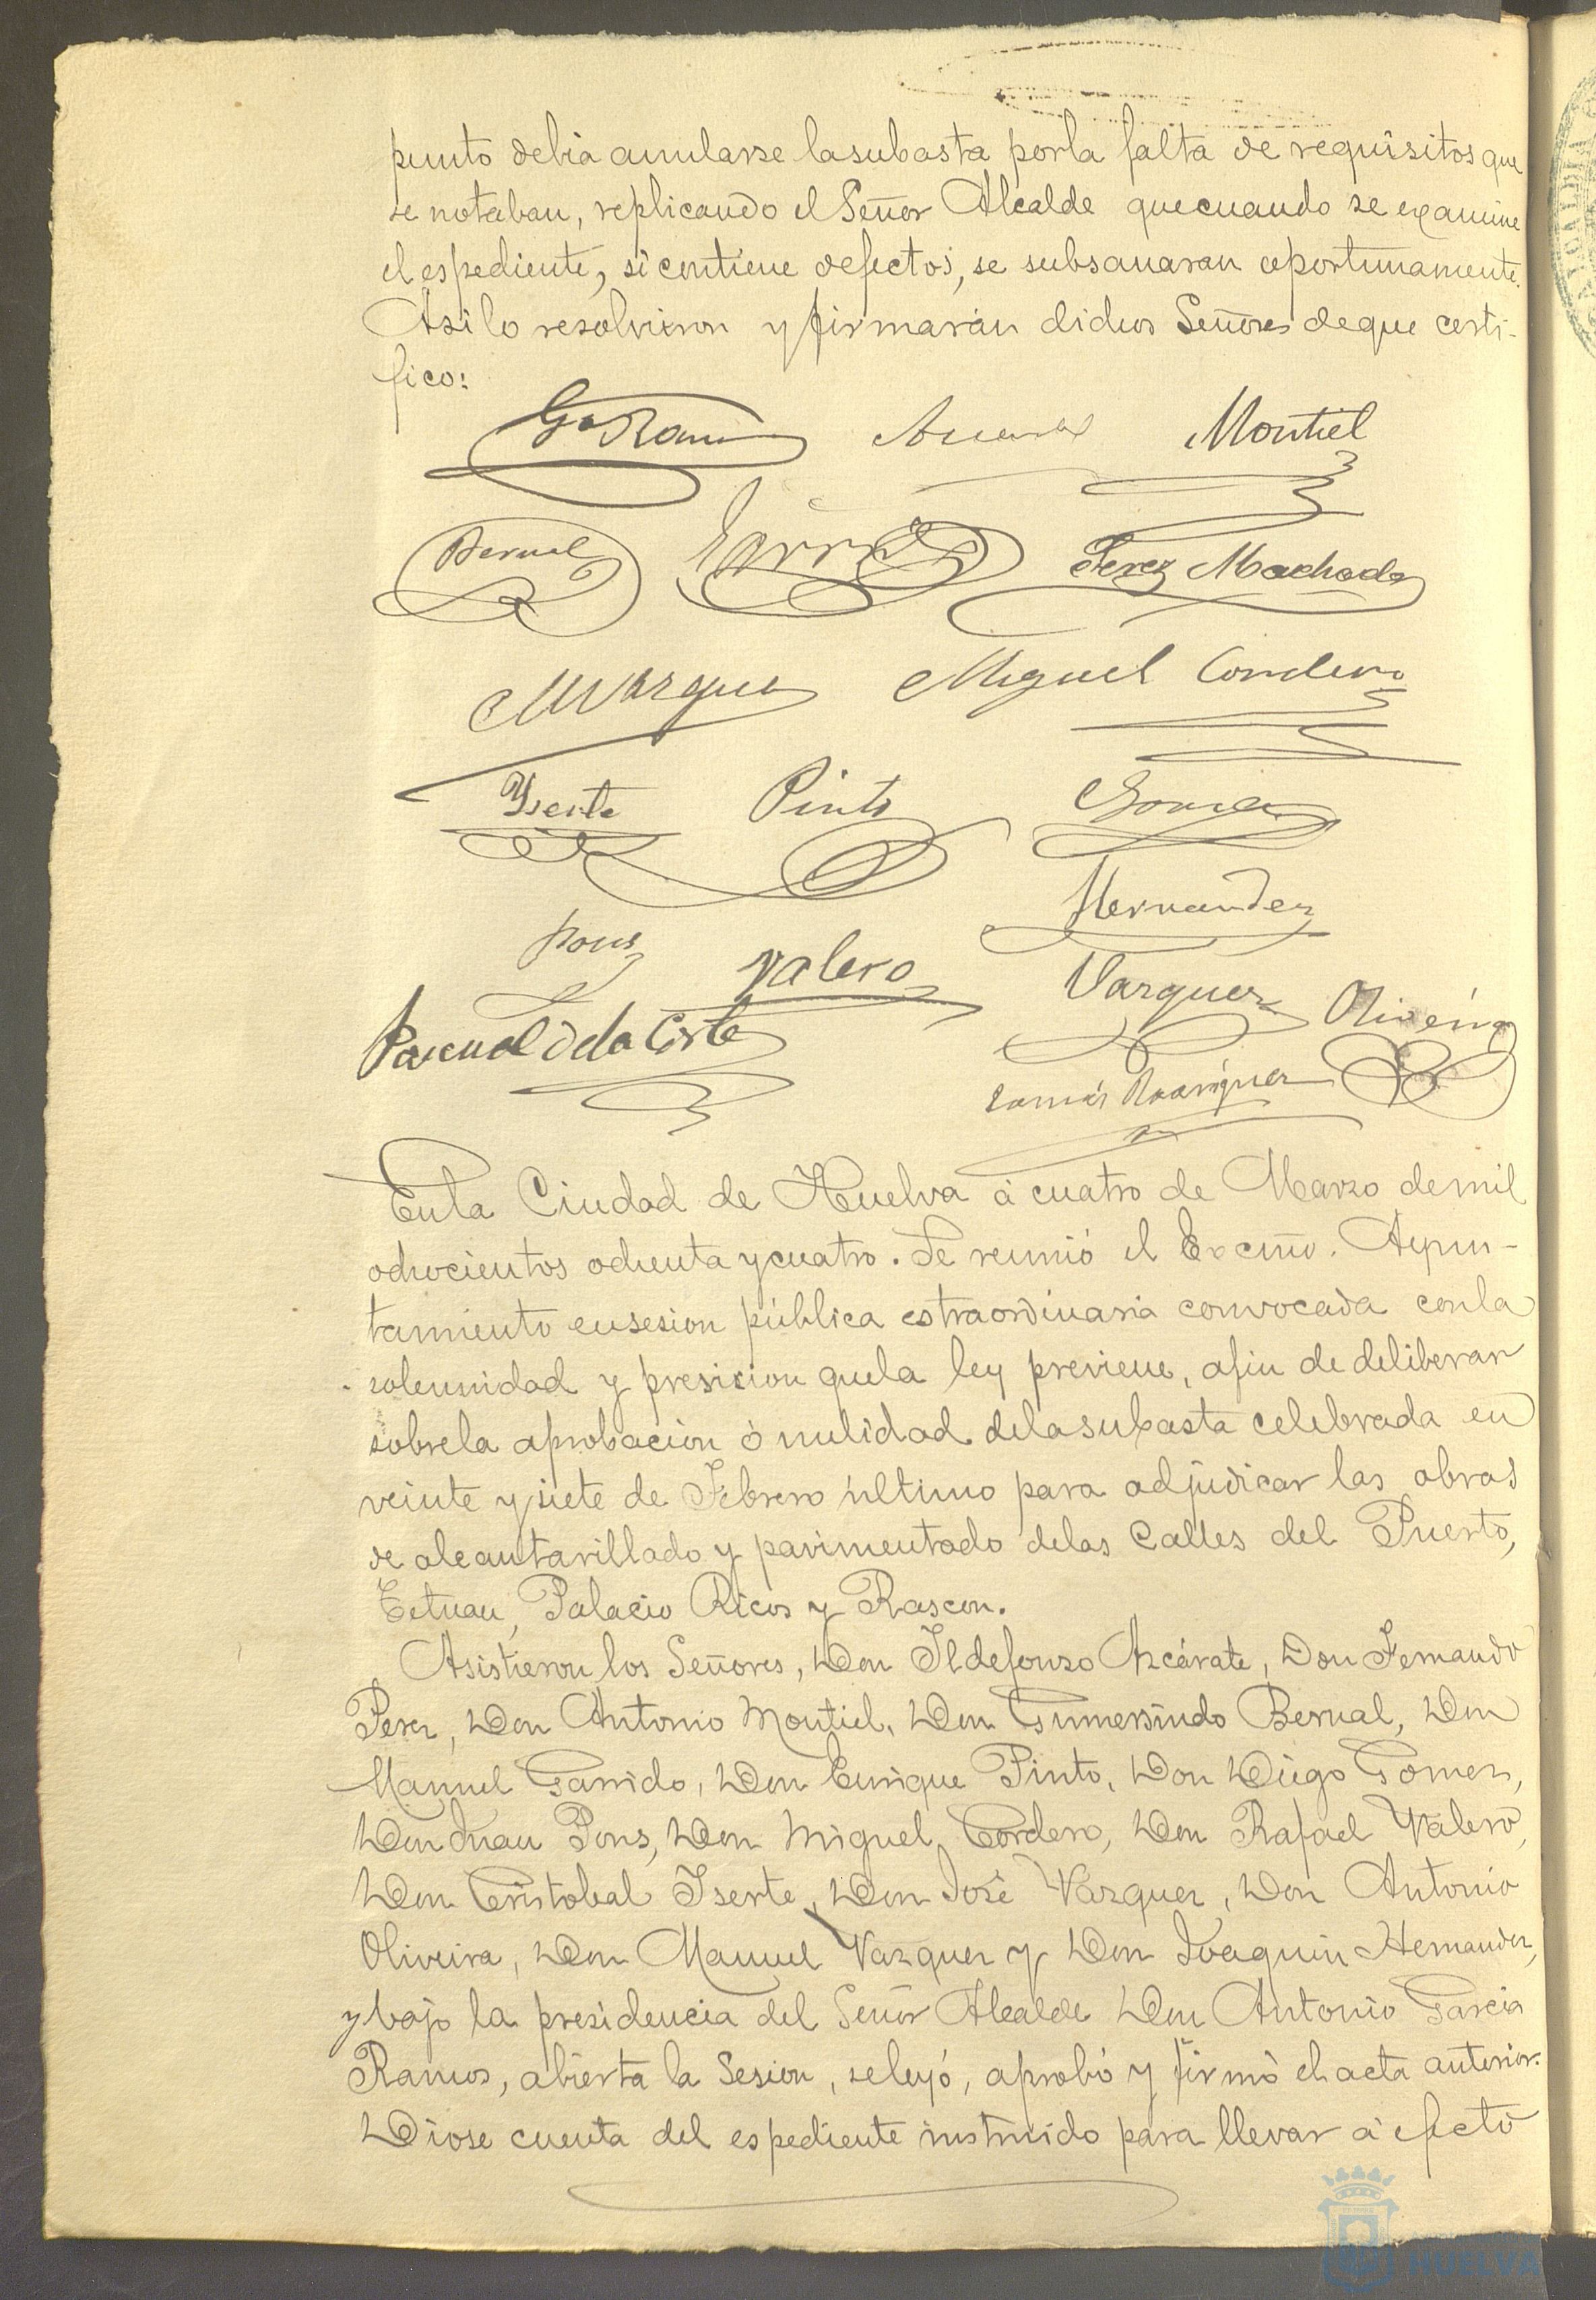 punto debia anularse la subasta por la falta de requisitos que
se notaban, replicando el Señor Alcalde que cuando se examine
el espediente, si contiene defectos, se subsanaran oportunamente.
Asi lo resolvieron y firmarán dichos Señores de que certi-
fico:
Ga Ramos Montiel
Bernal Perez Machado
M Vazquez Miguel Cordero
Yserte Pinto Gomez
Hernandez
Pons Valero Vazquez Oliveira
Pascual de la Corte
Tomás Rodriguez
En la Ciudad de Huelva á cuatro de Marzo de mil
ochocientos ochenta y cuatro. Se reunió el Excmo. Ayun-
tamiento en sesion pública estraordinaria convocada con la
solemnidad y presicion que la ley previene, afin de deliberar
sobre la aprobacion ó nulidad de la subasta celebrada en
veinte y siete de Febrero último para adjudicar las obras
de alcantarillado y pavimentado de las Calles del Puerto,
Tetuan, Palacio Ricos y Rascon.
Asistieron los Señores, Don Ildefonso Azcárate, Don Fernando
Perez, Don Antonio Montiel, Don Gumersindo Bernal, Don
Manuel Garrido, Don Enrique Pinto, Don Diego Gomez,
Don Juan Pons, Don Miguel Cordero, Don Rafael Valero,
Don Cristobal Iserte, Don José Vazquez, Don Antonio
Oliveira, Don Manuel Vazquez y Don Joaquin Hernandez,
y bajo la presidencia del Señor Alcalde Don Antonio Garcia
Ramos, abierta la Sesion, se leyó, aprobó y firmó el acta anterior.
Diose cuenta del espediente instruido para llevar á efecto
HUELVA